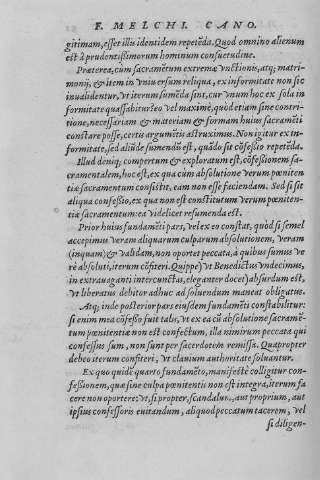 F. MELCHI. CANO.
gitimam, esser illis identidem repetēda. Quod omnino alienum
est à prudentissimorum hominum consuetudine.
Præterea, cum sacramētum extremæ vnctionis, atq; matri-
monij, & item in vniuersum reliqua, ex informitate non sic
inualidentur, vt iterum sumēda sint, cur vnum hoc ex sola in
formitate quassabitur? eo vel maximè, quòd etiam sine contri-
tione, necessariam & materiam & formam huius sacramēti
constare posse, certis argumētis astruximus. Non igitur ex in-
formitate, sed aliūde sumendū est, quādo sit cōfessio repetēda.
Illud deniq; compertum & exploratum est, cōfessionem sa-
cramentalem, hoc est, ex qua cùm absolutione verum pœniten
tiæ sacramentum consistit, eam non esse faciendam. Sed si sit
aliqua confessio, ex qua non est constitutum verum pœniten-
tiæ sacramentum: ea videlicet resumenda est.
Prior huius fundamēti pars, vel ex eo constat, quòd si semel
accepimus veram aliquarum culparum absolutionem, veram
(inquam) & validam, non oportet peccata, à quibus sumus ve
rè absoluti, iterum cōfiteri. Quippe (vt Benedictus vndecimus,
in extrauaganti intercunctas, eleganter docet) absurdum est,
vt liberatus debitor adhuc ad soluendum maneat obligatus.
Atq; inde posterior pars eiusdem fundamēti constabilitur:
si enim mea cōfessio fuit talis, vt ex ea cū absolutione sacramē-
tum pœnitentiæ non est confectum, illa nimirum peccata qui
confessus sum, non sunt per sacerdotem remissa. Quapropter
debeo iterum confiteri, vt clauium authoritate soluantur.
Ex quo quidē quarto fundamēto, manifestè colligitur con-
fessionem, quæ sine culpa pœnitentis non est integra, iterum fa
cere non oportere: vt, si propter, scandalum, aut proprium, aut
ipsius confessoris euitandum, aliquod peccatum tacerem, vel
si diligen-